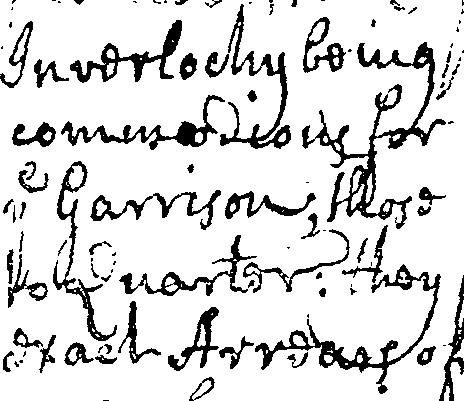 Inverlochy being
commodious for
ye Garrison, those
to Quarter: they
exact Arrears of